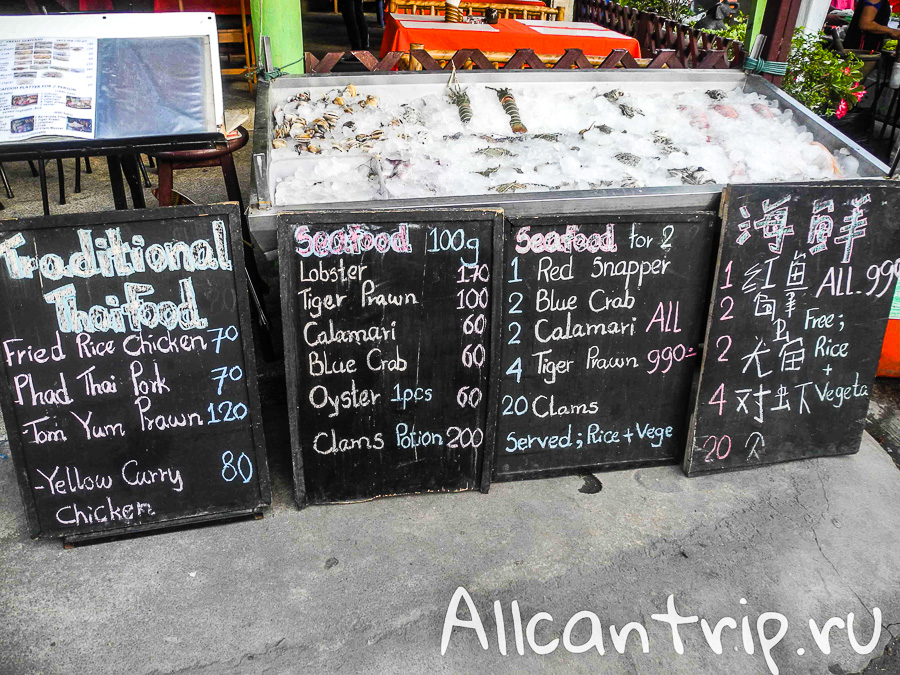 Traditional
Thai Food
Fried Rice Chicken 70
Phad Thai Pork 70
Tom Yum Prawn 120
-Yellow Curry 80
Chicken
Seafood 100g
Lobster 170
Tiger Prawn 100
Calamari 60
Blue Crab 60
Oyster 1pcs 60
Clams Potion 200
Seafood for 2
1 Red Snapper
2 Blue Crab
2 Calamari All
4 Tiger Prawn 990=
20 Clams
Served; Rice + Vege
海鮮
1 红鱼 ALL 990
2 Free;
2 Rice
+
4 对虾 Vegeta
20
Allcantrip.ru